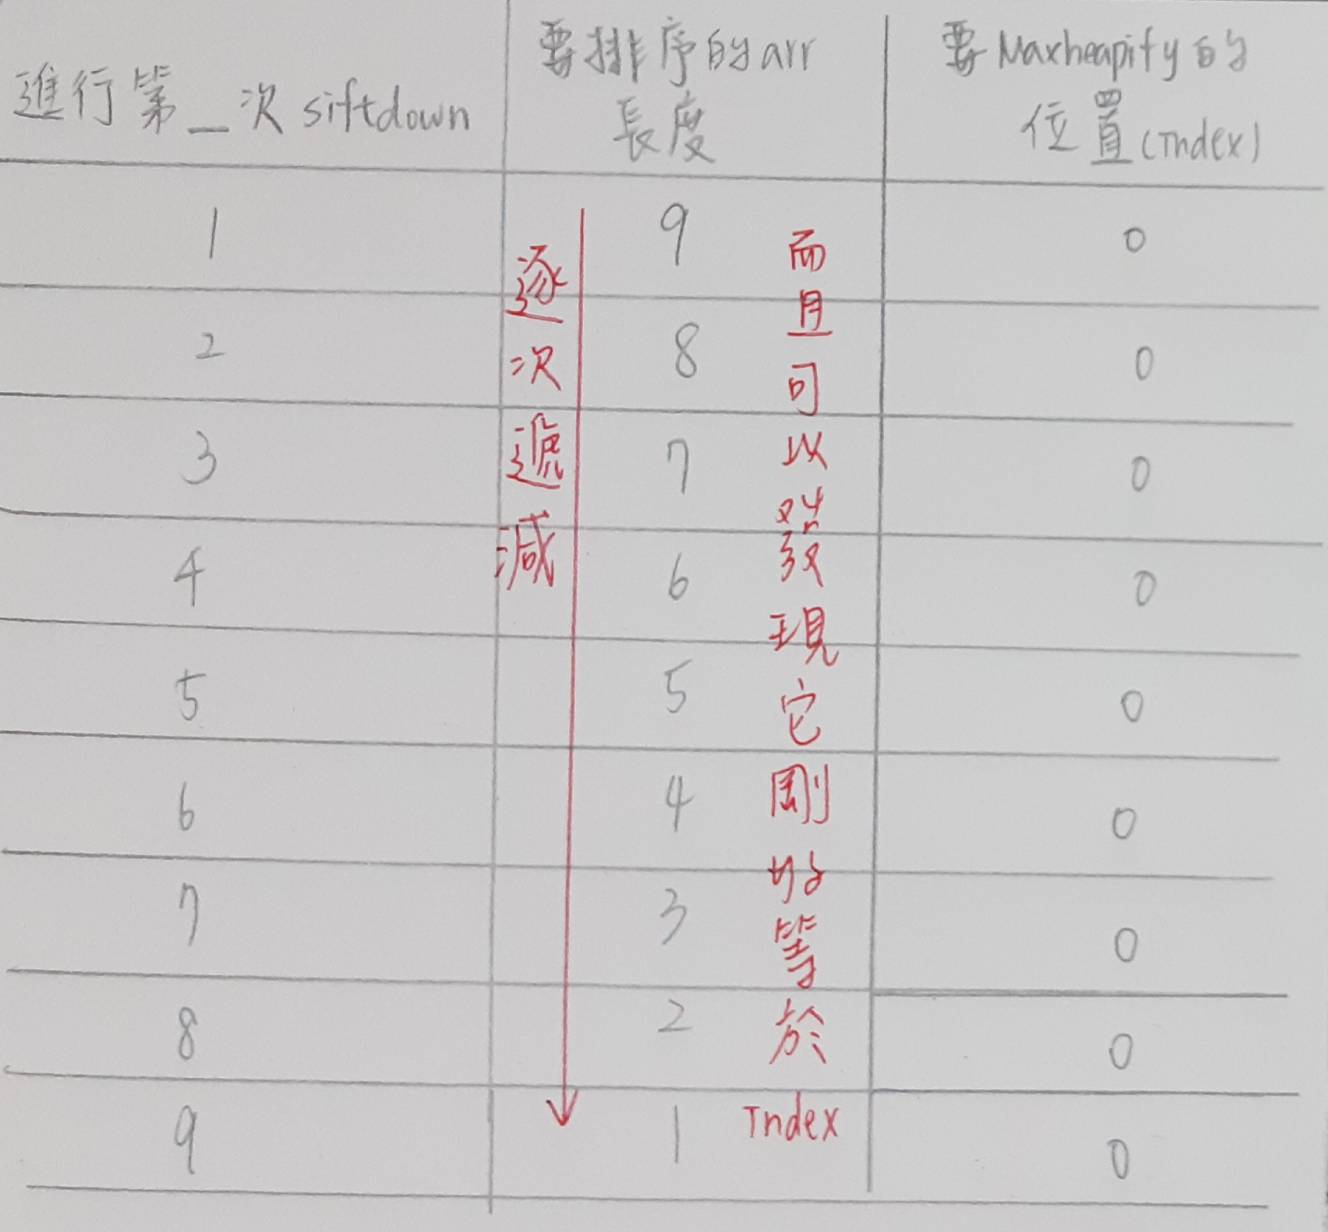 進行第_次siftdown
要排序的arr
長度
要Maxheapify的
位置(Index)
1 9 0
2 8 0
3 7 0
4 6 0
5 5 0
6 4 0
7 3 0
8 2 0
9 1 0
逐次遞減
而且可以發現它剛好等於
Index